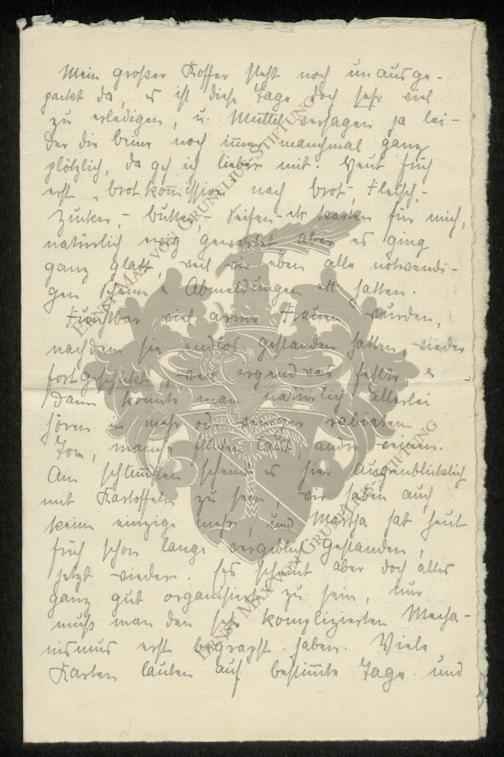 Mein großer Koffer steht noch unausge-
packt da, es ist diese Tage doch sehr viel
zu erledigen, u. Mutter versagen ja lei-
der die Beine noch immer manchmal ganz
plötzlich, da geh ich lieber mit. Heut früh
erst "Brotkommission" nach Brot-, Fleisch-,
Zucker-, Butter-, Seifen- etc karten für mich,
natürlich ewig gewartet, aber es ging
ganz glatt, weil wir eben alle notwendi-
gen Scheine, Abmeldungen ect hatten.
Furchtbar viel arme Frauen wurden,
nachdem sie endlos gestanden hatten, wieder
fortgeschickt, weil irgend was fehlte, u.
dann konnte man natürlich allerlei
hören in mehr od. weniger rabiatem
Ton, manche fluchen laut, andre weinen.
Am schlimmsten scheint es hier augenblicklich
mit Kartoffeln zu sein, wir haben auch
keine einzige mehr, und Martha hat heut
früh schon lange vergeblich gestanden,
jetzt wieder. Es scheint aber doch alles
ganz gut organisiert zu sein, nur
muß man den komplizierten Mecha-
nismus erst begrapst haben. Viele
Karten lauten auf bestimmte Tage und
ERNST MAX VON GRUNELIUS-STIFTUNG
ERNST MAX VON GRUNELIUS-STIFTUNG